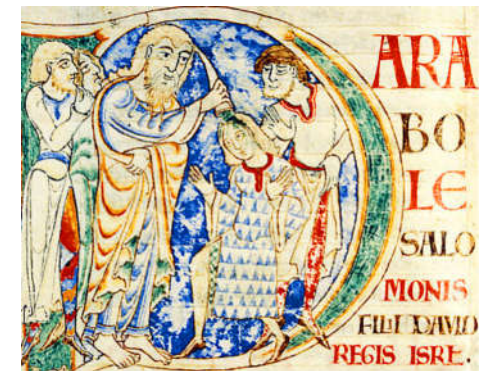 ARA
BO
LE
SALO
MONIS
FILII DAVID
REGIS ISRL.